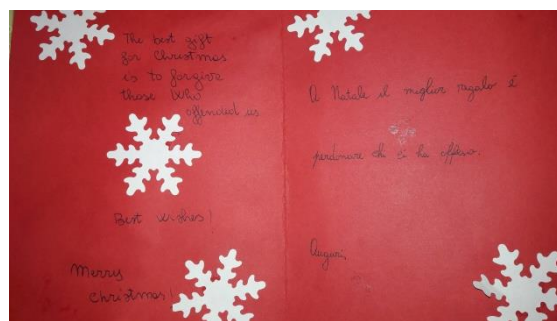 The best gift
for Christmas
is to forgive
those who
offended us
Best wishes!
Merry
Christmas!
A Natale il miglior regalo è
perdonare chi ci ha offeso.
Auguri,